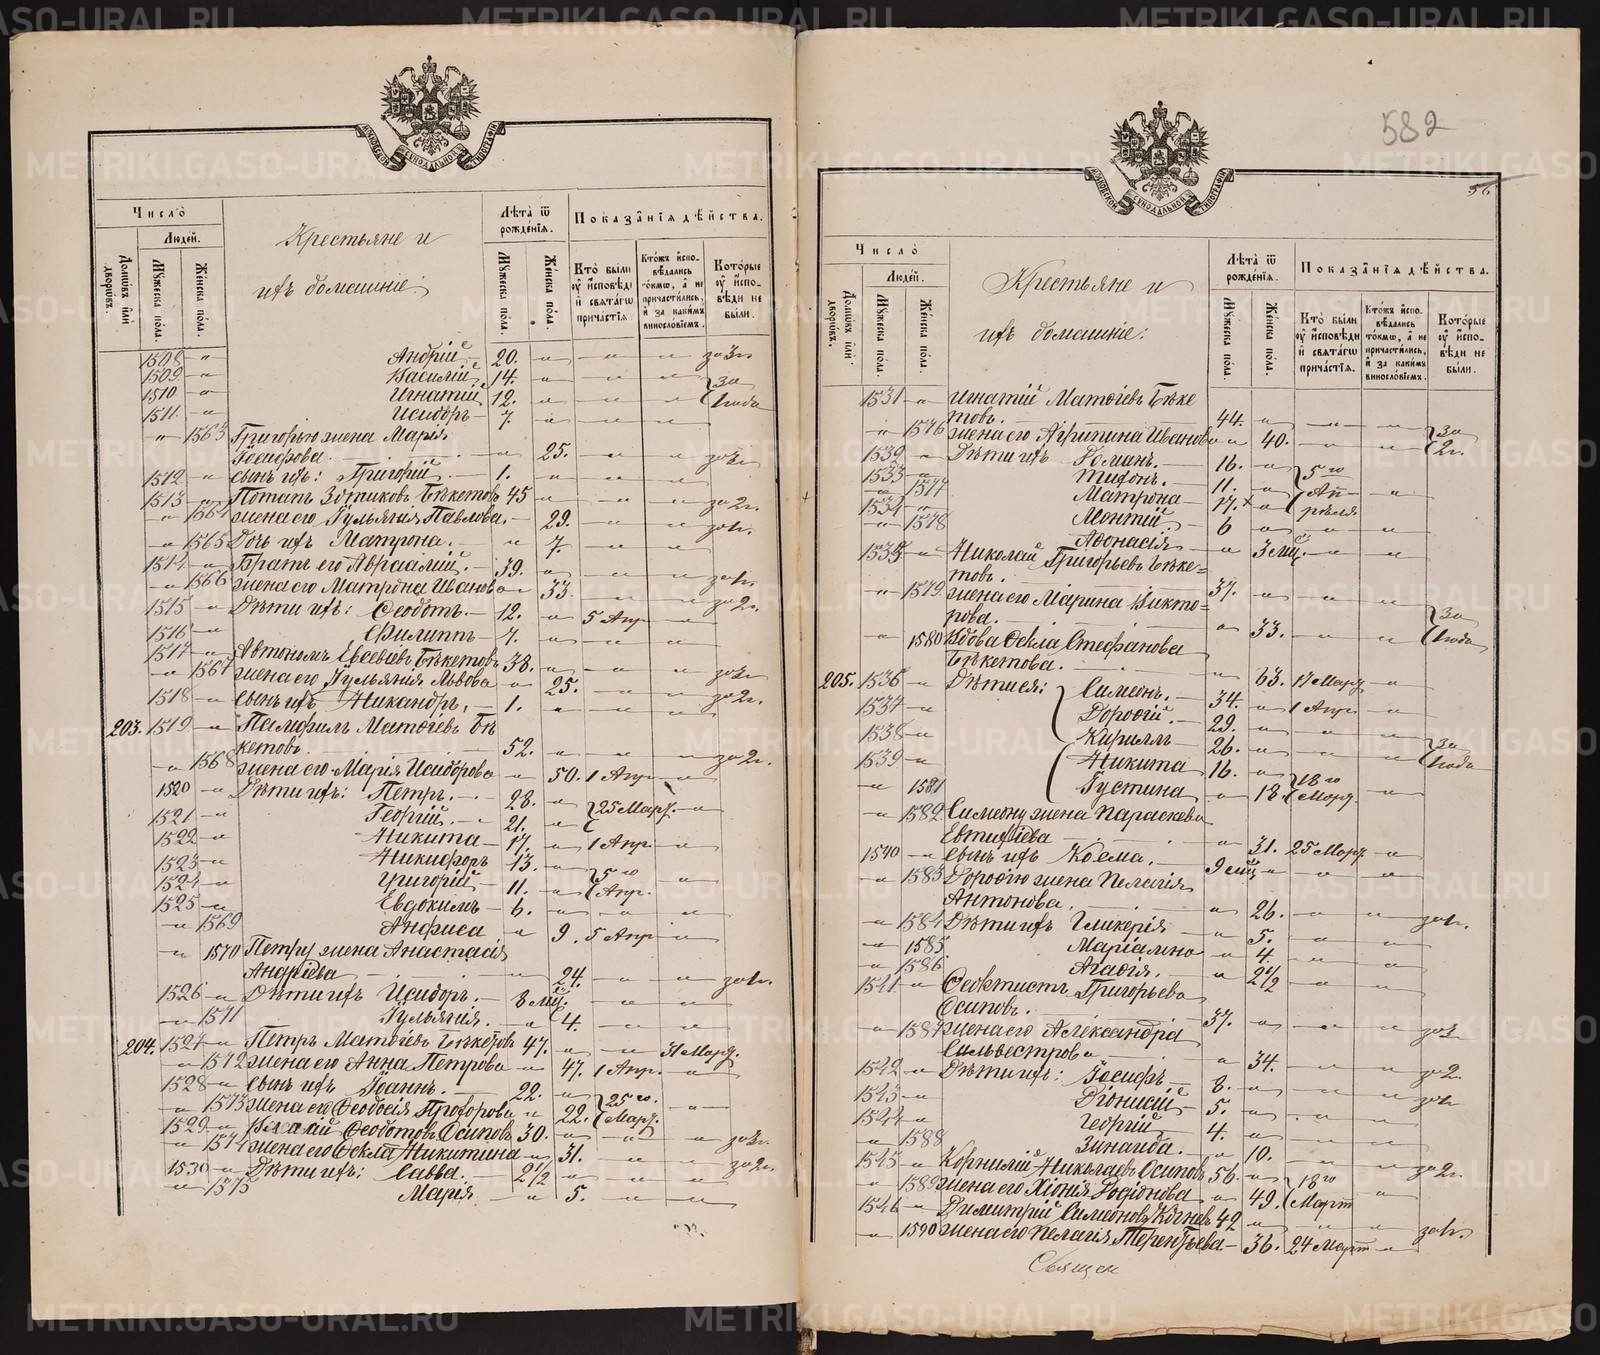 582
56
Число
Людей.
Домовъ или дворовъ.
Мужеска пола.
Женска пола.
Крестьяне и
ихъ домашніе.
Лѣта ѿ рожденія.
Мужеска пола.
Женска пола.
Показанія дѣйства.
Кто были у исповѣди и святагѡ причастія.
Ктожъ исповѣдались токмо, а не причастились, и за какимъ винословіемъ.
Которые у исповѣди не были.
1508 " Андрій 20. " " " за 3 г.
1509 " Василій 14. " " "
1510 " Игнатій 12. " " " за
1511 " Исидоръ 7. " " " 1 года
" 1563 Григорью жена Марія
Іосифова. " 25. " " за 3 г.
1512 " сынъ ихъ: Григорій 1. " " "
1513 " Потапъ Зотиковъ Бѣкетовъ 45 " " " за 2 г.
" 1564 жена его Іульянія Павлова. " 29. " " за 1 г.
" 1565 Дочь ихъ Матрона. " 7. " "
1514 " Братъ его Авраамій. 39. " " " за 1 г.
" 1566 жена его Матрона Иванова " 33. " " за 2 г.
1515 " Дѣти ихъ: Ѳеодотъ. 12. " 5 Апр "
1516 " Филиппъ 7. " " "
1517 " Автономъ Евсевіевъ Бѣкетовъ 38. " " " за 3 г.
" 1567 жена его Іульянія Львова " 25. " " за 2 г.
1518 " сынъ ихъ Никандръ. 1. " " "
203. 1519 " Памфилъ Матѳіевъ Бѣ
кетовъ. 52. " " " за 2 г.
" 1568 жена его Марія Исидорова " 50. 1 Апр "
1520 " Дѣти ихъ: Петръ. 28. " 25 Март. "
1521 " Георгій. 21. "
1522 " Никита 17. " 1 Апр. "
1523 " Никифоръ 13. "
1524 " Григорій 11. " 5 го Апр. "
1525 " Евдокимъ 6. " " "
" 1569 Анфиса " 9. 5 Апр "
" 1570 Петру жена Анастасія
Андріева " 24. " " за 1 г.
1526 " Дѣти ихъ Исидоръ. 8 мц. " " "
" 1571 Іульянія. " 4. " "
204. 1527 " Петръ Матѳіевъ Бѣкетовъ 47. " " 31 Март.
" 1572 жена его Анна Петрова " 47. 1 Апр. "
1528 " сынъ ихъ Іоаннъ. 22. " 25 го
" 1573 жена его Ѳеодосія Прохорова " 22. Март. "
1529 " Ѳеодотовъ Осиповъ 30. " " " за 3 г.
" 1574 жена его Ѳекла Никитина " 31. " " за 2 г.
1530 " Дѣти ихъ: Савва. 2 1/2 " " "
" 1575 Марія " 5. " "
Число
Людей.
Домовъ или дворовъ.
Мужеска пола.
Женска пола.
Крестьяне и
ихъ домашніе.
Лѣта ѿ рожденія.
Мужеска пола.
Женска пола.
Показанія дѣйства.
Кто были у исповѣди и святагѡ причастія.
Ктожъ исповѣдались токмо, а не причастились, и за какимъ винословіемъ.
Которые у исповѣди не были.
1531 " Игнатій Матѳіевъ Бѣке
товъ. 44. " " " за
" 1576 жена его Агрипина Иванова " 40. " " 2 г.
1532 " Дѣти ихъ Романъ. 16. " 5 го
1533 " Тихонъ. 11. " Ап- "
" 1577 Матрона 17. " рѣля
1534 " Монтій. 6 " " "
" 1578 Аѳонасія " 3 мц. " "
1535 " Николай Григорьевъ Бѣке=
товъ. 37. " " "
" 1579 жена его Марина Викто=
рова. " 33. " " за 1 года
" 1580 Вдова Ѳекла Стефанова
Бѣкетова. " 63. 17 Март "
205. 1536 " Дѣти ея: Симеонъ. 34. " 1 Апр. "
1537 " Дороѳій. 29. " "
1538 " Кириллъ 26. " " " за
1539 " Никита 16. " 1 года
" 1581 Іустина " 18. 18 го Март "
" 1582 Симеону жена Параскева
Евтихіева " 31. 25 Март. "
1540 " сынъ ихъ Козма. 9 мц " " "
" 1583 Дороѳію жена Пелагія
Антонова. " 26. " " за 1 г.
" 1584 Дѣти ихъ Гликерія " 5. " "
" 1585 Маріамна " 4. " "
" 1586 Агаѳія. " 2 1/2 " "
1541 " Ѳеоктистъ Григорьевъ
Осиповъ. 37. " " " за 3
" 1587 жена его Александра
Сильвестрова " 34. " " за 2.
1542 " Дѣти ихъ: Іосифъ 8. " " " за 1
1543 " Діонисій 5. " " "
1544 " Георгій 4. " " "
" 1588 Зинаида. " 10. " " за 2 г.
1545 " Корнилій Николаевъ Осиповъ 56. " 18 го
" 1589 жена его Хіонія Родіонова " 49. Март "
1546 " Димитрій Симеоновъ 42 " " " за 1 г.
" 1590 жена его Пелагія Терентьева " 36. 24 Март "
Священ